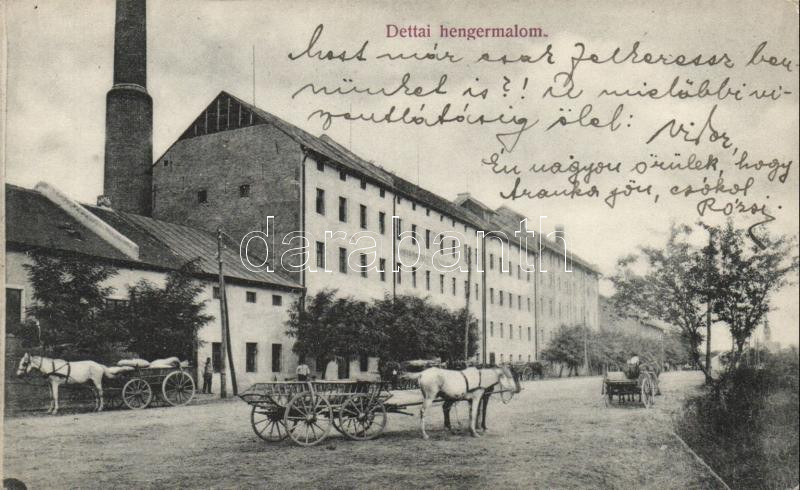 Dettai hengermalom.
most már csak felkeressz ben-
nünket is?! A mielőbbi vi-
szontlátásig ölel: Vidor,
Én nagyon örülek, hogy
Aranka jön, csókol
Rózsi
darabanth.com